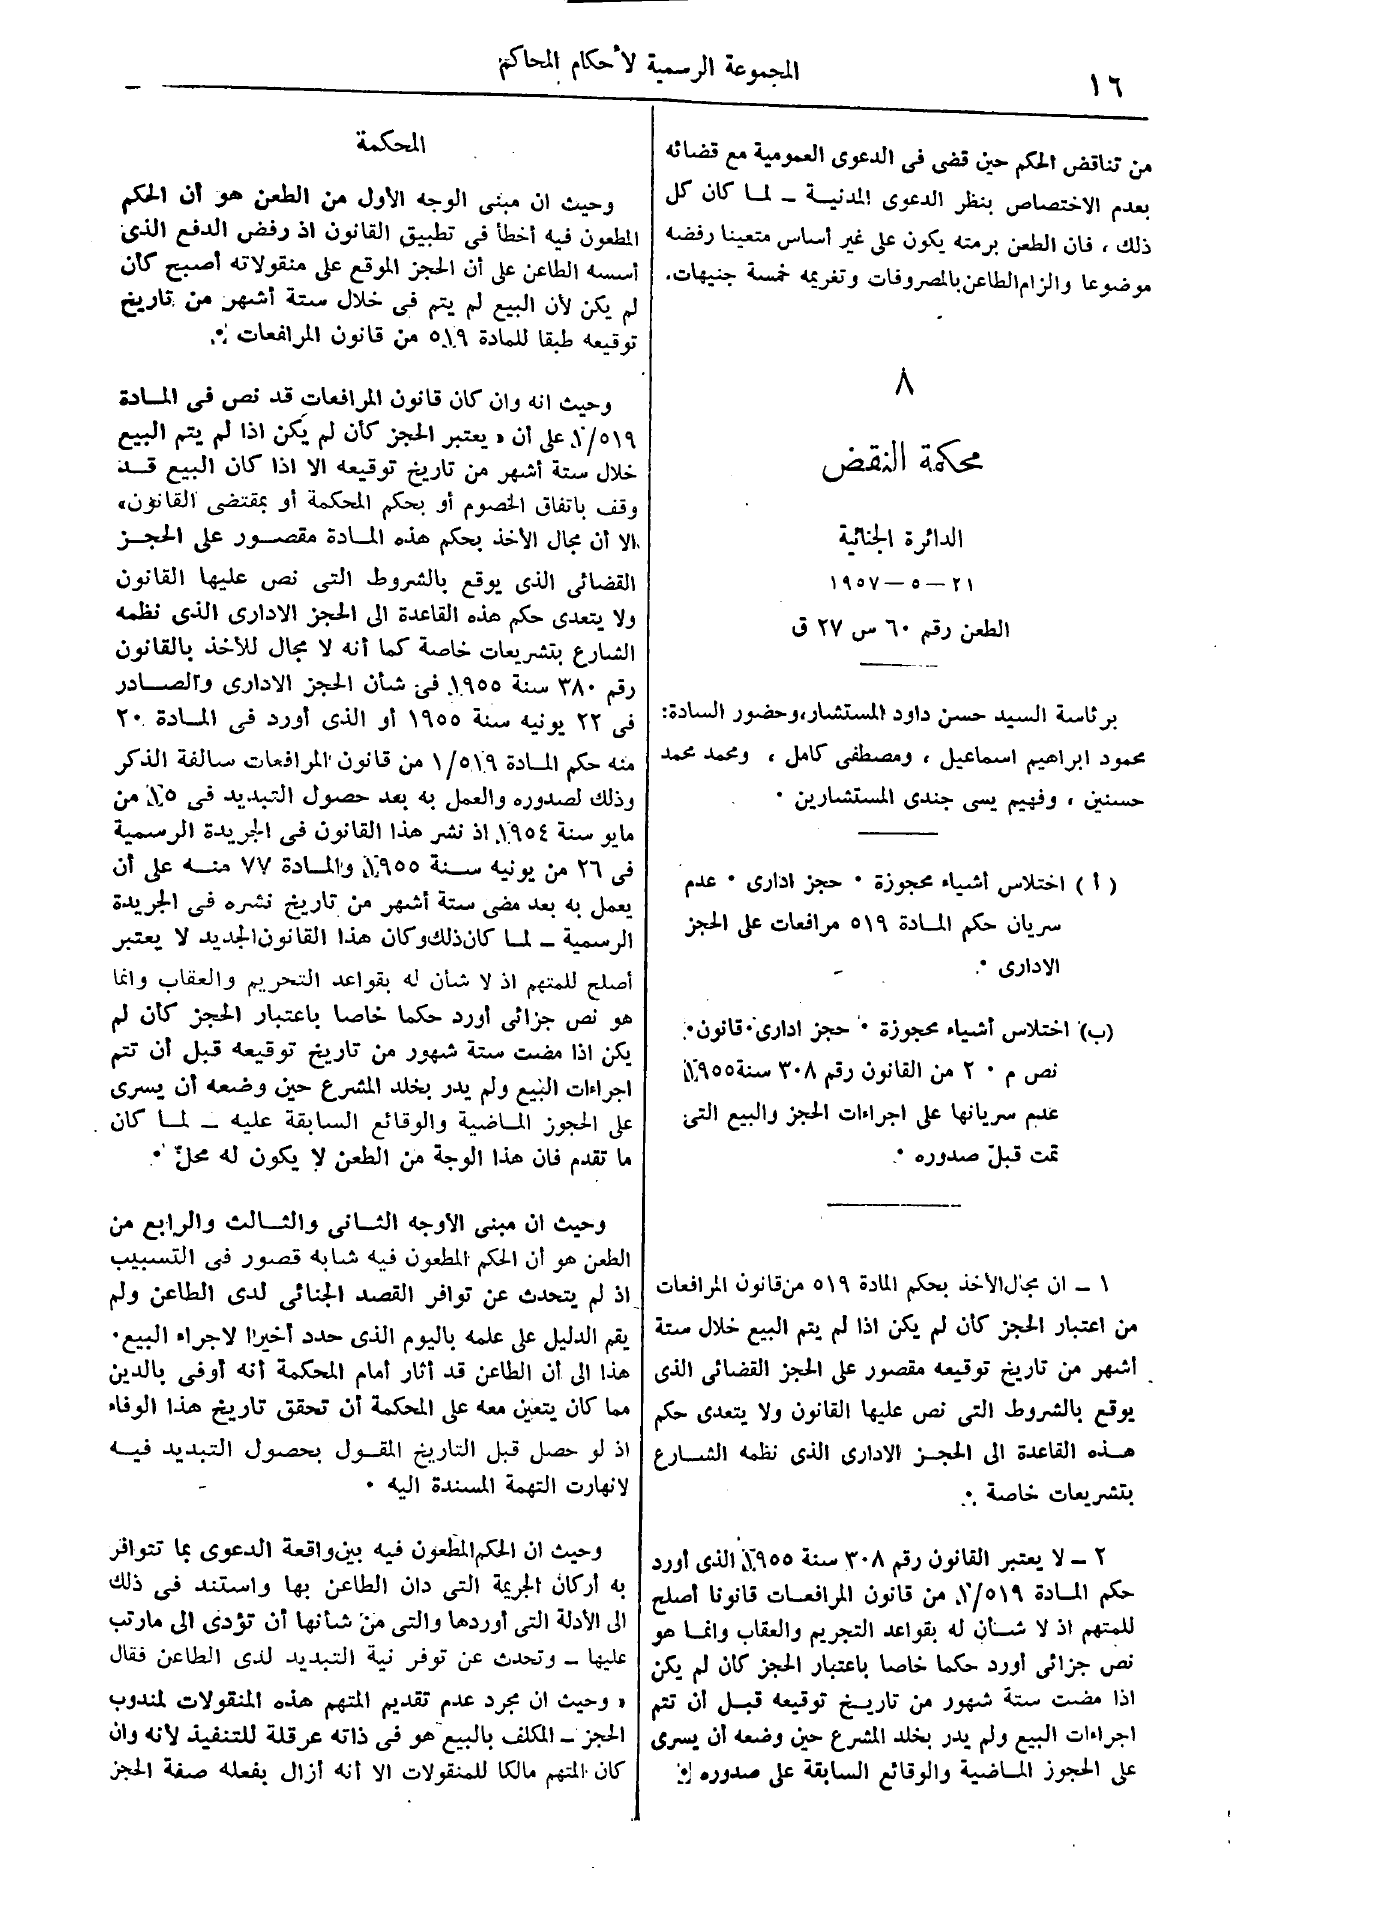 ١٦
المجموعة الرسمية لأحكام المحاكم
من تناقض الحكم حين قضى فى الدعوى العمومية مع قضائه
بعدم الاختصاص بنظر الدعوى المدنيـة ـ لمـا كان كل
ذلك ، فان الطعن برمته يكون على غير أساس متعينا رفضه
موضوعا والزام الطاعن بالمصروفات وتغريمه خمسة جنيهات.
٨
محكمة النقض
الدائرة الجنائية
٢١ – ٥ – ١٩٥٧
الطعن رقم ٦٠ س ٢٧ ق
برئاسة السيد حسن داود المستشار، وحضور السادة:
محمود ابراهيم اسماعيل ، ومصطفى كامل ، ومحمد محمد
حسنين ، وفهيم يسى جندى المستشارين ٠
( أ ) اختلاس أشياء محجوزة ٠ حجز ادارى ٠ عدم
سريان حكم المـادة ٥١٩ مرافعات على الحجز
الادارى ٠
(ب) اختلاس أشياء محجوزة ٠ حجز ادارى ٠ قانون ٠
نص م ٢٠ من القانون رقم ٣٠٨ سنة ١٩٥٥
عدم سريانها على اجراءات الحجز والبيع التى
تمت قبل صدوره ٠
١ ـ ان مجال الأخذ بحكم المادة ٥١٩ من قانون المرافعات
من اعتبار الحجز كأن لم يكن اذا لم يتم البيع خلال ستة
أشهر من تاريخ توقيعه مقصور على الحجز القضائى الذى
يوقع بالشروط التى نص عليها القانون ولا يتعدى حكم
هـذه القاعدة الى الحجـز الادارى الذى نظمه الشـارع
بتشريعات خاصة ٠
٢ ـ لا يعتبر القانون رقم ٣٠٨ سنة ١٩٥٥ الذى أورد
حكم المـادة ١/٥١٩ من قانون المرافعـات قانونا أصلح
للمتهم اذ لا شـأن له بقواعد التجريم والعقاب وانمـا هو
نص جزائى أورد حكما خاصا باعتبار الحجز كأن لم يكن
اذا مضت ستة شهور من تاريـخ توقيعه قبـل أن تتم
اجراءات البيع ولم يدر بخلد المشرع حين وضعه أن يسرى
على الحجوز المـاضية والوقائع السابقة على صدوره ٠
المحكمة
وحيث ان مبنى الوجه الأول من الطعن هو أن الحكم
المطعون فيه أخطأ فى تطبيق القانون اذ رفض الدفع الذى
أسسه الطاعن على أن الحجز الموقع على منقولاته أصبح كأن
لم يكن لأن البيع لم يتم فى خلال ستة أشهر من تاريخ
توقيعه طبقا للمادة ٥١٩ من قانون المرافعات ٠
وحيث انه وان كان قانون المرافعات قد نص فى المـادة
١/٥١٩ على أن « يعتبر الحجز كأن لم يكن اذا لم يتم البيع
خلال ستة أشهر من تاريخ توقيعه الا اذا كان البيع قـد
وقف باتفاق الخصوم أو بحكم المحكمة أو بمقتضى القانون»
الا أن مجال الأخذ بحكم هذه المـادة مقصـور على الحجـز
القضائى الذى يوقع بالشروط التى نص عليها القانون
ولا يتعدى حكم هذه القاعدة الى الحجز الادارى الذى نظمه
الشارع بتشريعات خاصة كما أنه لا مجال للأخذ بالقانون
رقم ٣٨٠ سنة ١٩٥٥ فى شأن الحجز الادارى والصـادر
فى ٢٢ يونيه سنة ١٩٥٥ أو الذى أورد فى المـادة ٢٠
منه حكم المـادة ١/٥١٩ من قانون المرافعات سالفة الذكر
وذلك لصدوره والعمل به بعد حصول التبديد فى ١٥ من
مايو سنة ١٩٥٤ اذ نشر هذا القانون فى الجريدة الرسمية
فى ٢٦ من يونيه سـنة ١٩٥٥ والمـادة ٧٧ منـه على أن
يعمل به بعد مضى ستة أشهر من تاريخ نشره فى الجريدة
الرسمية ـ لمـا كان ذلك وكان هذا القانون الجديد لا يعتبر
أصلح للمتهم اذ لا شأن له بقواعد التحريم والعقاب وانما
هو نص جزائى أورد حكما خاصا باعتبار الحجز كأن لم
يكن اذا مضت ستة شهور من تاريخ توقيعه قبل أن تتم
اجراءات البيع ولم يدر بخلد المشرع حين وضعه أن يسرى
على الحجوز المـاضية والوقائع السابقة عليه ـ لمـا كان
ما تقدم فان هذا الوجة من الطعن لا يكون له محل ٠
وحيث ان مبنى الأوجه الثـانى والثـالث والرابع من
الطعن هو أن الحكم المطعون فيه شابه قصور فى التسبيب
اذ لم يتحدث عن توافر القصد الجنائى لدى الطاعن ولم
يقم الدليل على علمه باليوم الذى حدد أخيرا لاجراء البيع ٠
هذا الى أن الطاعن قد أثار أمام المحكمة أنه أوفى بالدين
مما كان يتعين معه على المحكمة أن تحقق تاريخ هذا الوفاء
اذ لو حصل قبل التاريخ المقـول بحصول التبديد فيـه
لانهارت التهمة المسندة اليه ٠
وحيث ان الحكم المطعون فيه بين واقعة الدعوى بما تتوافر
به أركان الجريمة التى دان الطاعن بها واستند فى ذلك
الى الأدلة التى أوردها والتى من شأنها أن تؤدى الى مارتب
عليها ـ وتحدث عن توفر نية التبديد لدى الطاعن فقال
« وحيث ان مجرد عدم تقديم المتهم هذه المنقولات لمندوب
الحجز ـ المكلف بالبيع هو فى ذاته عرقلة للتنفيذ لأنه وان
كان المتهم مالكا للمنقولات الا أنه أزال بفعله صفة الحجز